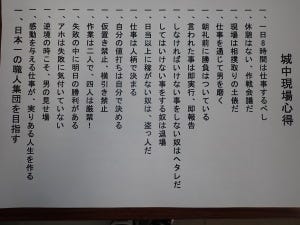 城中現場心得
一、一日8時間は仕事するべし
一、休憩はない、作戦会議だ
一、現場は相撲取りの土俵だ
一、仕事を通じて男を磨く
一、朝礼前に勝負はついている
一、言われた事は即実行、即報告
一、しなければいけない事をしない奴はヘタレだ
一、してはいけない事をする奴は退場
一、日当以上に稼がない奴は、盗っ人だ
一、仕事は人柄で決まる
一、自分の値打ちは自分で決める
一、仮置き禁止、横引き禁止
一、作業は二人で、四人は厳禁!
一、失敗の中に明日の勝利がある
一、アホは失敗に気付いていない
一、逆境の時こそ、男の見せ場
一、感動を与える仕事が、実りある人生を作る
一、日本一の職人集団を目指す